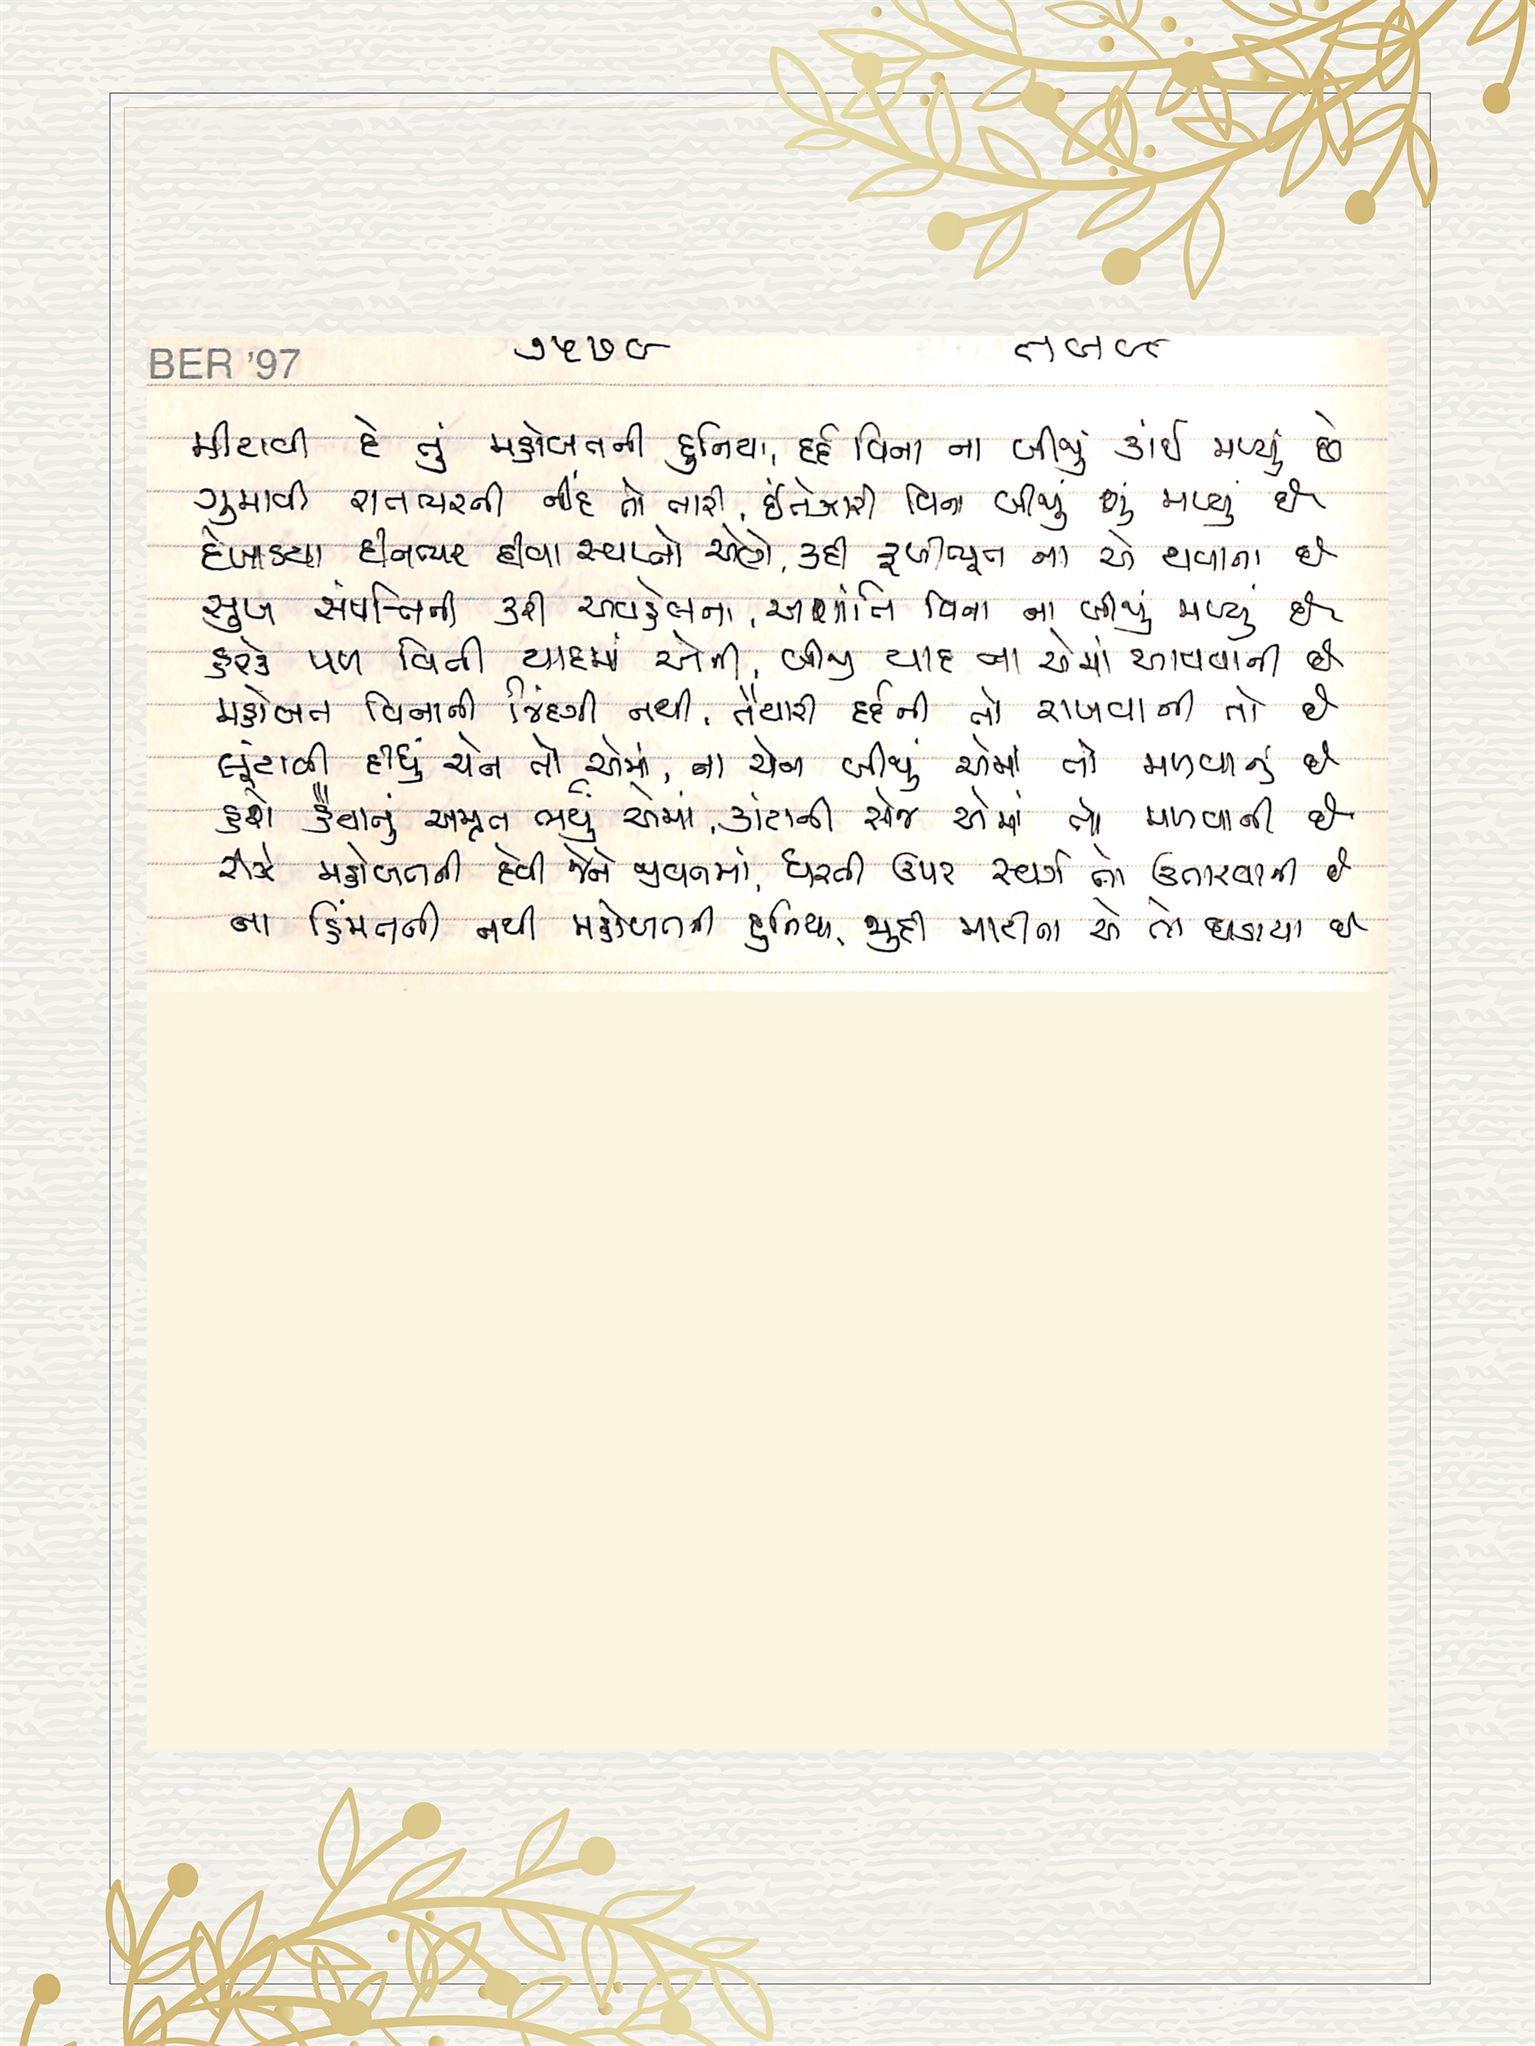 BER '97 ૭૫૭૯
મીટાવી દે તું મહોબતની દુનિયા, દર્દ વિના ના બીજું કાંઈ મળ્યું છે
ગુમાવી રાતભરની નીંદ તો તારી, ઈંતેઝારી વિના બીજું શું મળ્યું છે
દેખાડયા દીનભર દીવા સ્વપ્નો એણે, કદી ફળીભૂત ના એ થવાના છે
સુખ સંપત્તિની કરી અવહેલના, અશાંતિ વિના ના બીજું મળ્યું છે
હરેક પળ વિતી યાદમાં એની, બીજી યાદ ના એમાં આવવાની છે
મહોબત વિનાની જિંદગી નથી, તૈયારી દર્દની તો રાખવાની તો છે
લૂંટાવી દીધું ચેન તો એમાં, ના ચેન બીજું એમાં તો મળવાનું છે
હશે હૈયાનું અમૃત ભર્યું એમાં, કાંટાની સેજ એમાં તો મળવાની છે
રીઝે મહોબતની દેવી જેને જીવનમાં, ધરતી ઉપર સ્વર્ગ તો ઉતારવાની છે
ના હિંમતની નથી મહોબતની દુનિયા, જુદી માટીના એ તો ઘડાયા છે